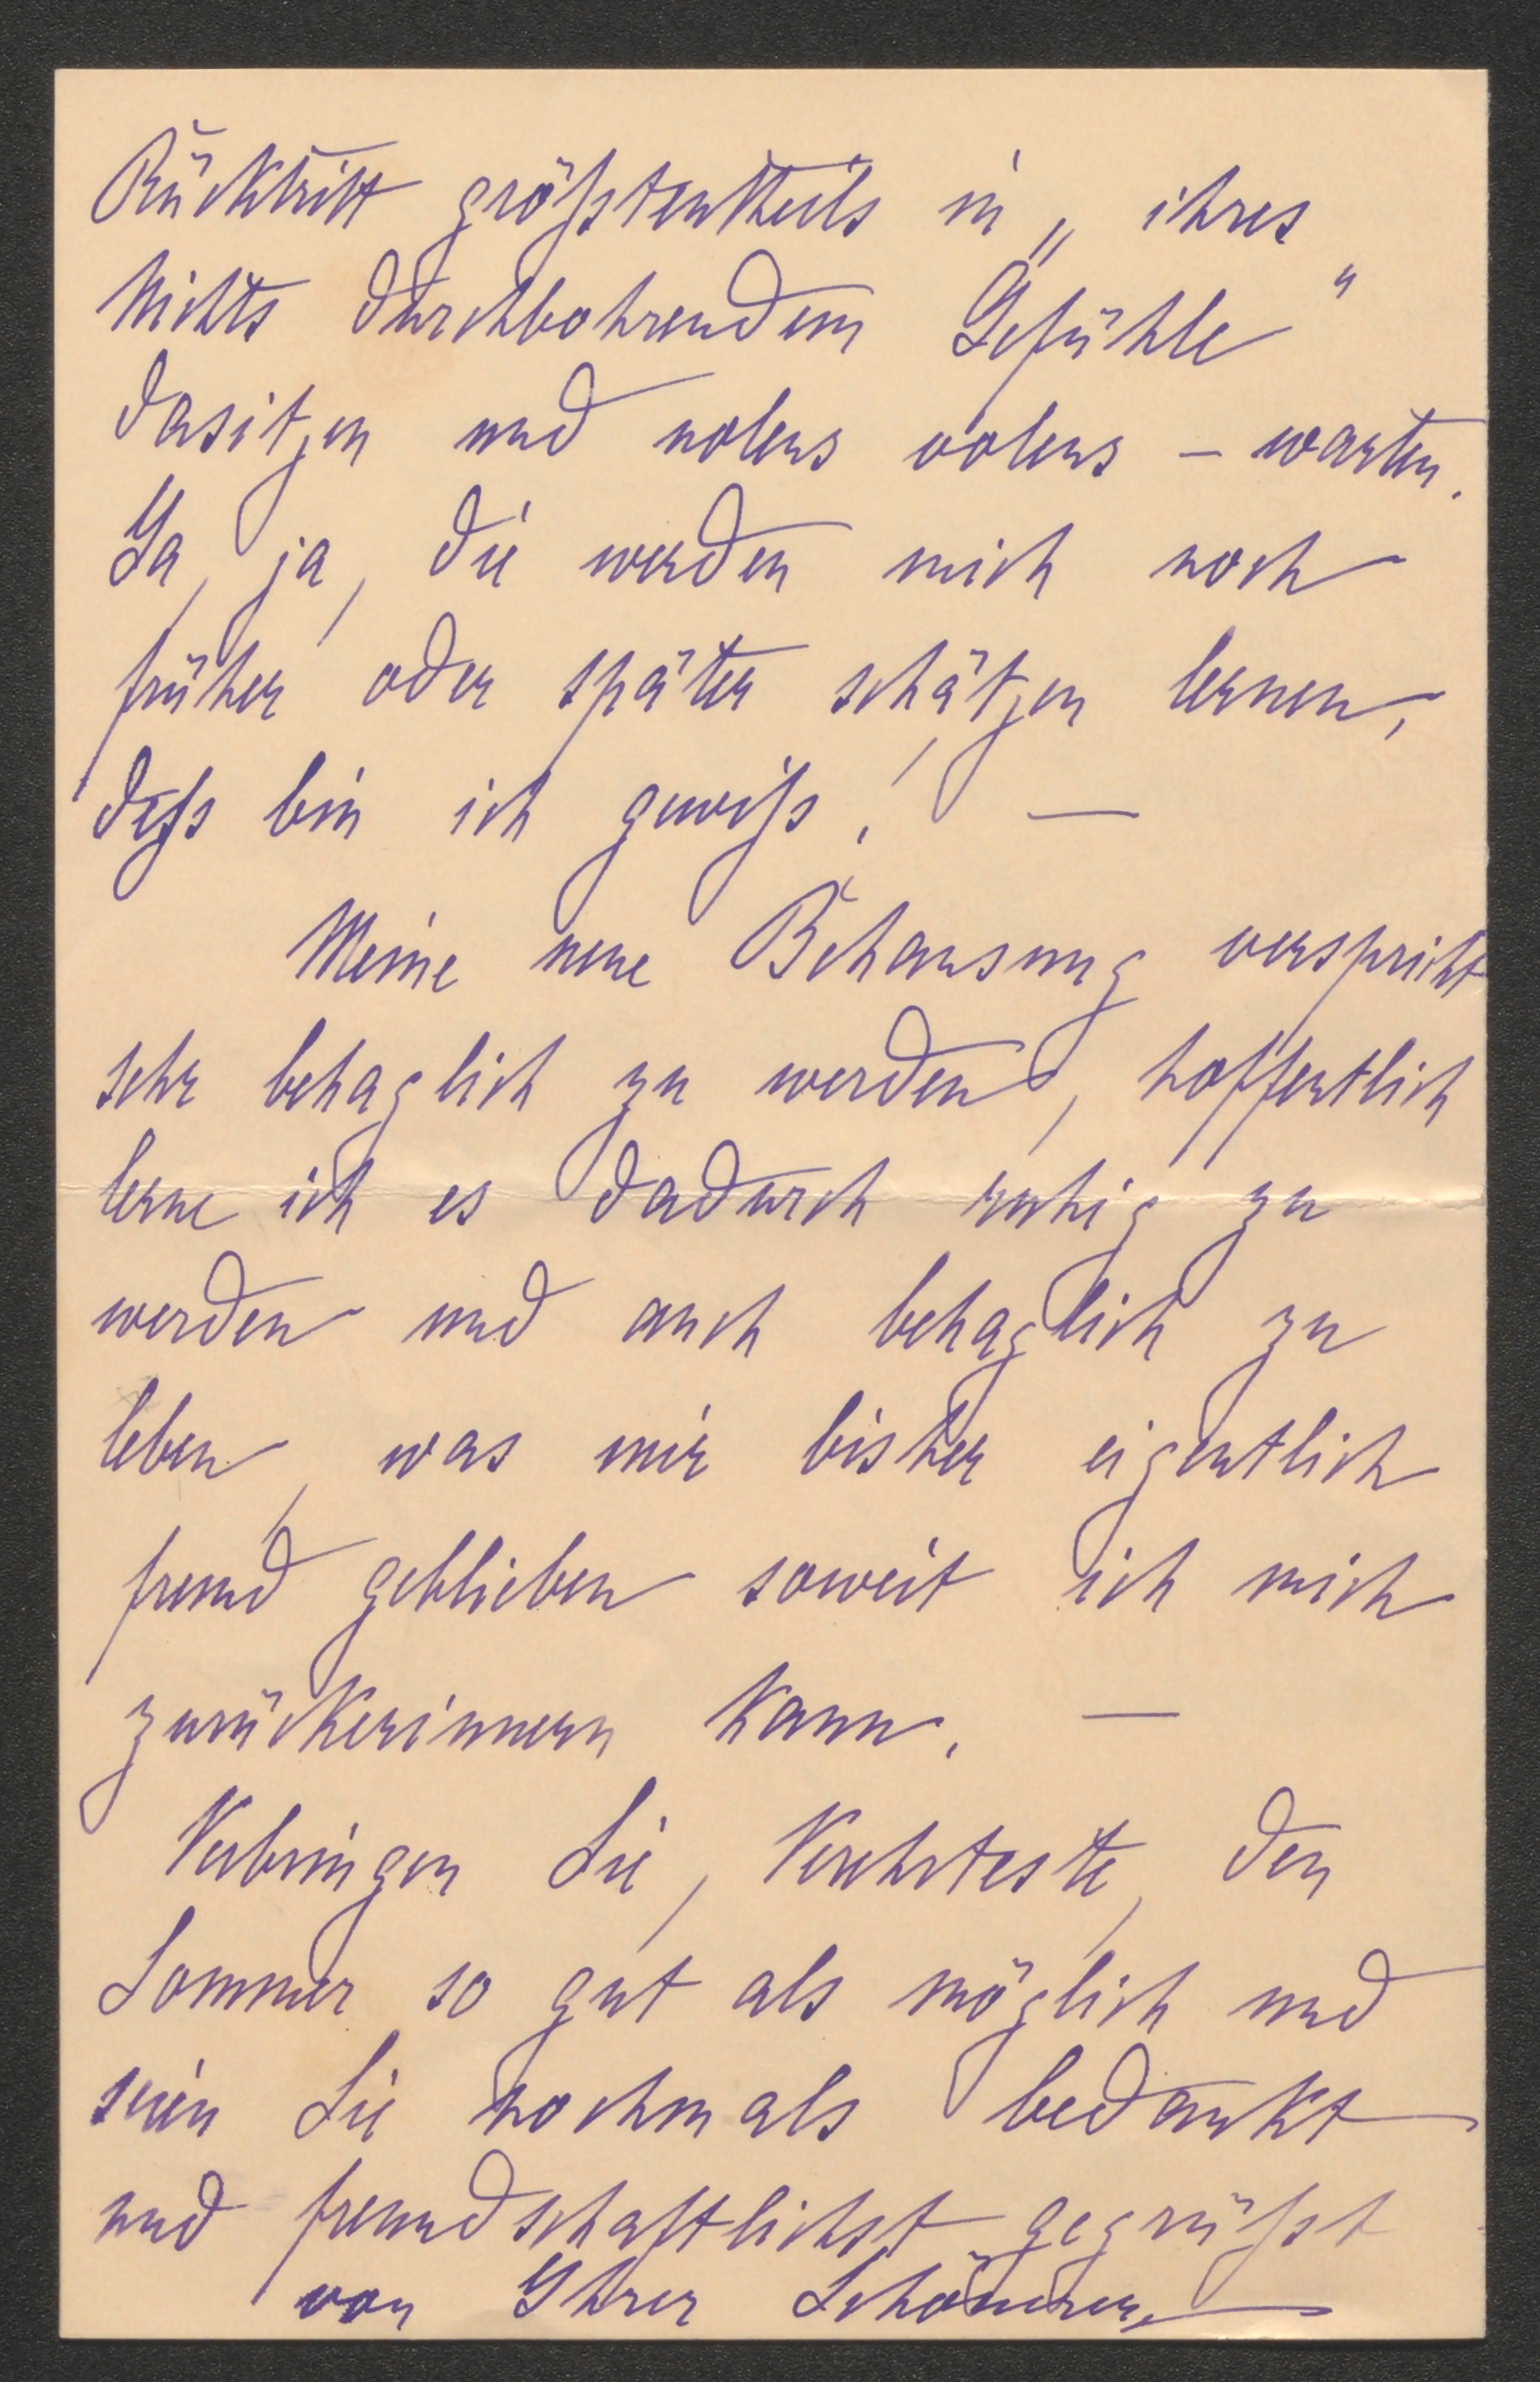 Rücktritt größstentheils in „ihres
Nichts durchbohrendem Gefühle“
dasitzen und nolens volens – warten.
Ja, ja, die werden mich noch
früher oder später schätzen lernen,
dess bin ich gewiß! —
Meine neue Behausung verspricht
sehr behaglich zu werden, hoffentlich
lerne ich es dadurch ruhig zu
werden und auch behaglich zu
leben, was mir bisher eigentlich
fremd geblieben soweit ich mich
zurückerinnern kann. —
Verbringen Sie, Verehrteste, den
Sommer so gut als möglich und
seien Sie nochmals bedankt
und freundschaftlichst gegrüßt
von Ihrer